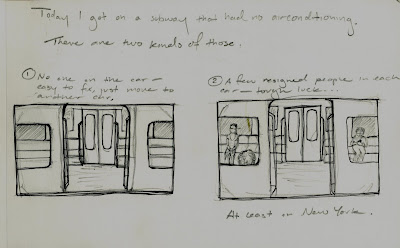 Today I got on a subway that had no airconditioning.
There are two kinds of those.
① No one on the car —
easy to fix, just move to
another car.
② A few resigned people in each
car — tough luck...
At least in New York.